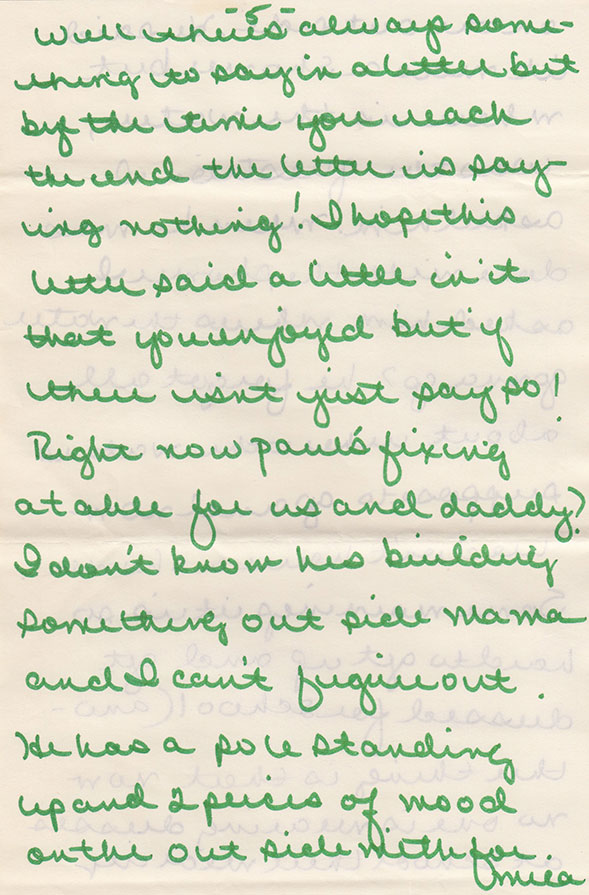 -5-
Well there's always some-
thing to say in a letter but
by the time you reach
the end the letter is say-
ing nothing! I hope this
letter said a little in it
that you enjoyed but if
there isn't just say so!
Right now paul's fixing
a table for us and daddy?
I don't know hes building
something out side mama
and I can't fugire out.
He has a pole standing
up and 2 peices of wood
on the out side with for